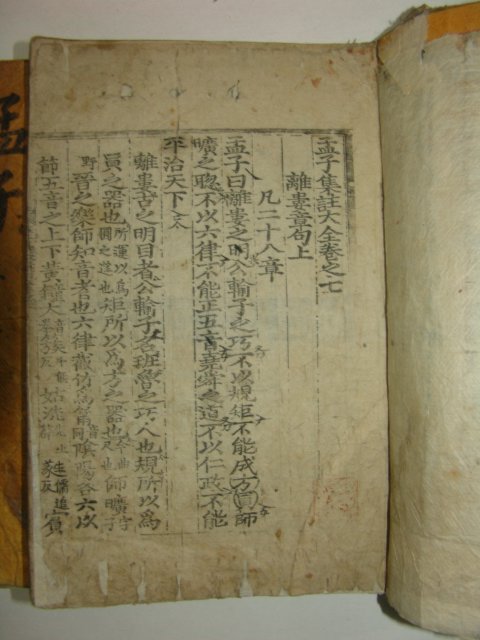 孟子集註大全卷之七
離婁章句上
凡二十八章
孟子曰離婁之明公輸子之巧不以規矩不能成方員師
曠之聰不以六律不能正五音堯舜之道不以仁政不能
平治天下
離婁古之明目者公輸子名班魯之巧人也規所以爲
員之器也矩所以爲方之器也師曠字子
野晉之樂師知音者也六律截竹爲筩陰陽各六以
節五音之上下黃鍾大姑洗蕤賓
孟子